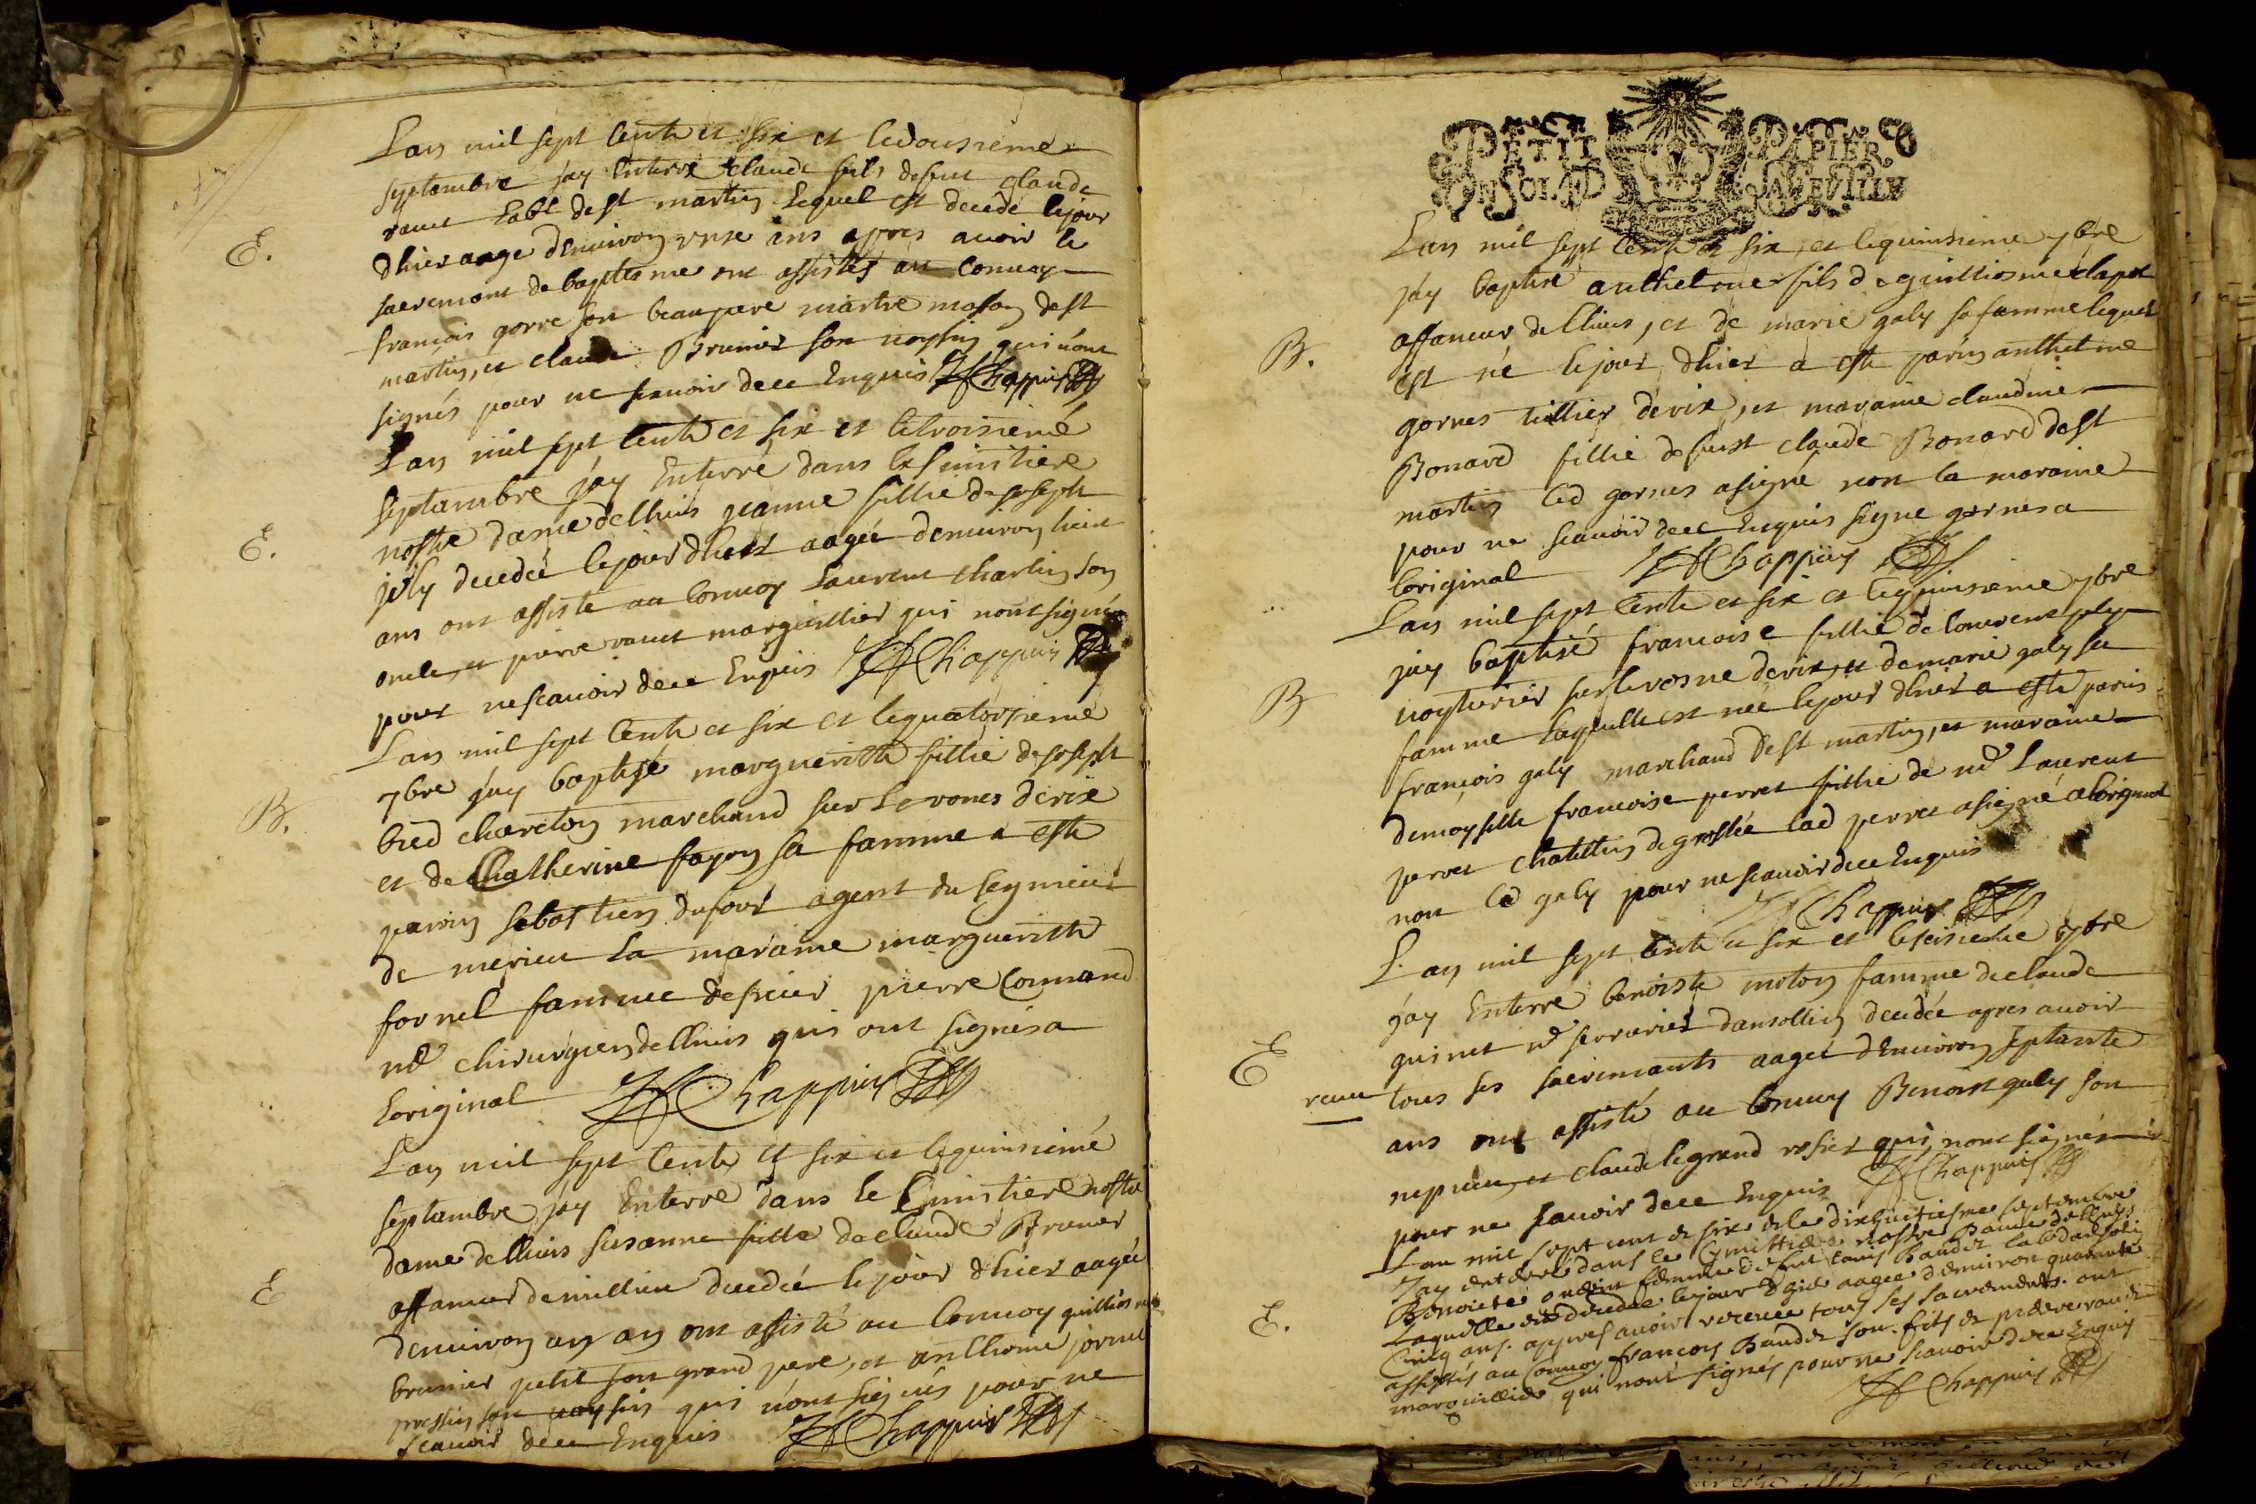 Lan mil sept cents et six et ledousieme
septambre jay enterré claude fils defunt claude
ravet labr de st martin lequel est decedé lejour
dhier aagé denviron onse ans apres avoir le
sacremant de baptesme ont assistes au convoy
françois gorre son beaupere maitre masson de st
martin, et claude Brunier son voysin qui n'ont
signés pour ne scavoir dece enquis Chappuis
E.
Lan mil sept cents et six et letroisieme
septambre jay enterré dans le simistiere
nostre dame de lhuis jeanne fillie de joseph
joly decedée lejour dhier aagée denviron huict
ans ont assisté au convoy Laurent charlin son
oncle, et pierre ravet marguillier qui nont signés
pour ne scavoir dece enquis Chappuis
E.
Lan mil sept cents et six et lequatorsieme
7bre jay baptisé margueritte fillie de joseph
bied charelon marchand sur le rones derix
et de Chatherine fayon sa famme a esté
parrin sebastien dufour agent du seynieur
de merieu la maraine margueritte
fornel famme de sieur pierre Connand
md chirurgien de lhuis qui ont signés a
loriginal Chappuis
B.
Lan mil sept cents et six et lequinsieme
septambre jay enterré dans le simistiere nostre
dame de lhuis susanne fillie de claude Brunier
affaneur de millieu decedée lejour dhier aagée
denviron un an ont assisté au convoy guilliosme
brunier petit son grand pere, et antheme
son voysin qui n'ont signés pour ne
scavoir dece enquis Chappuis
E
PETIT PAPIER
UN SOL LA FEUILLE
Lan mil sept cents et six, et lequinsieme 7bre
jay baptisé anthelme fils de guilliosme clapot
affaneur de lhuis, et de marie galy sa famme lequel
est né lejour dhier a esté parin anthelme
gornes tuillier derix, et maraine claudine
Bonard fillie defunt claude Bonard de st
martin led gornes a signé non la maraine
pour ne scavoir dece enquis signe gornes a
loriginal Chappuis
B.
Lan mil sept cents et six et lequinsieme 7bre
jay baptisé francoise fillie de lourent joly
voyturier sur le rosne derix, et de marie galy sa
famme laquelle est née lejour dhier a esté parin
françois galy marchand de st martin, et maraine
demoyselle francoise perret fillie de md Laurent
perret chatellin de groslée lad perret a signé a loriginal
non led galy pour ne scavoir dece enquis
Chappuis
B
Lan mil sept cents et six et leseisieme 7bre
jay enterré benoiste moton famme de claude
guinet md serrurier dansollin decedée apres avoir
receu tous ses sacremants aagée denviron septante
ans ont assisté au convoy Benoist galy son
nepveu, et claude legrand rosier qui nont signés
pour ne scavoir dece enquis Chappuis
E
Lan mil sept cent et six et le dixhuitiesme septembre
Jay enterré dans le Cymittiere nostre Dame de lhuys
Benoicte femme de fut Louis Baudet lab dansolin
Laquelle est decedée lejour dhier aagée denviron quarante
Cinq ans. apres avoir receuë tous ses sacrements. ont
assistés au Convoy françois Baudet son fils et pierre ravet
marguillier qui nont signés pour ne scavoir dece enquis
Chappuis
E.